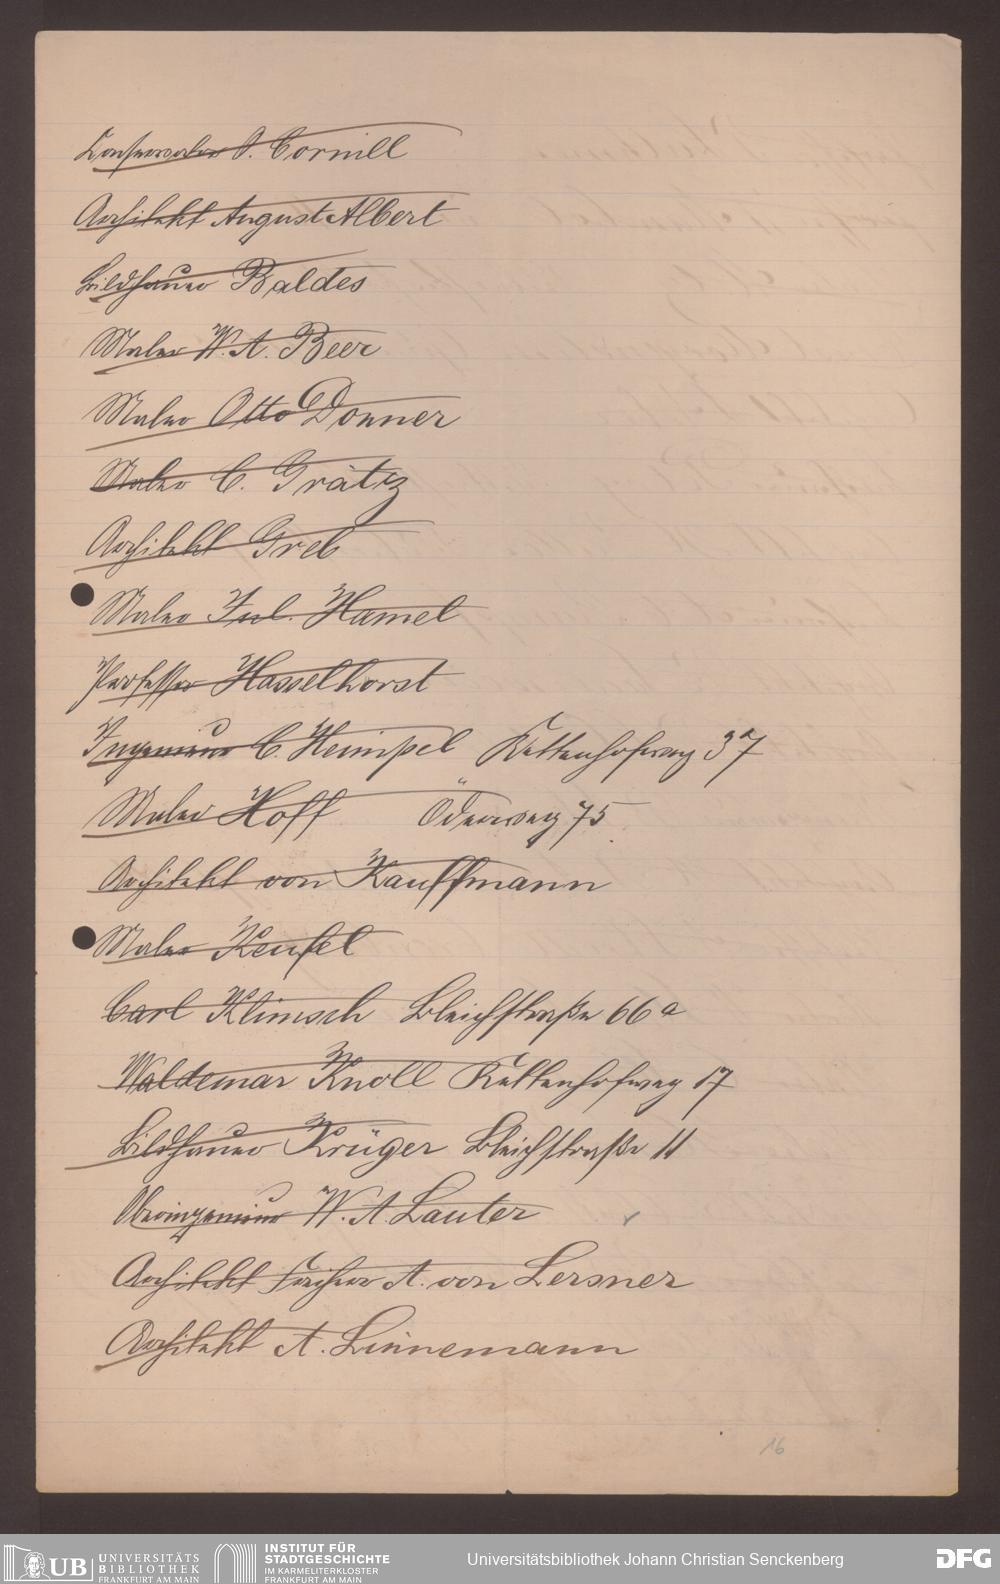 Konservator O. Cornill
Architekt August Albert
Bildhauer Baldes
Maler W. A. Beer
Maler Otto Donner
Maler C. Grätz
Architekt Greb
Maler Jul. Hamel
Professor Hasselhorst
Ingenieur C. Heimpel Kettenhofweg 37
Maler Hoff Öderweg 75
Architekt von Kauffmann
Maler Keufel
Carl Klimsch Bleichstraße 66a
Waldemar Knoll Kettenhofweg 17
Bildhauer Krüger Bleichstraße 11
Oberingenieur W. A. Lauter
Architekt Freiherr A. von Lersner
Architekt A. Linnemann
16
UB UNIVERSITÄTS BIBLIOTHEK FRANKFURT AM MAIN
INSTITUT FÜR STADTGESCHICHTE IM KARMELITERKLOSTER FRANKFURT AM MAIN
Universitätsbibliothek Johann Christian Senckenberg
DFG